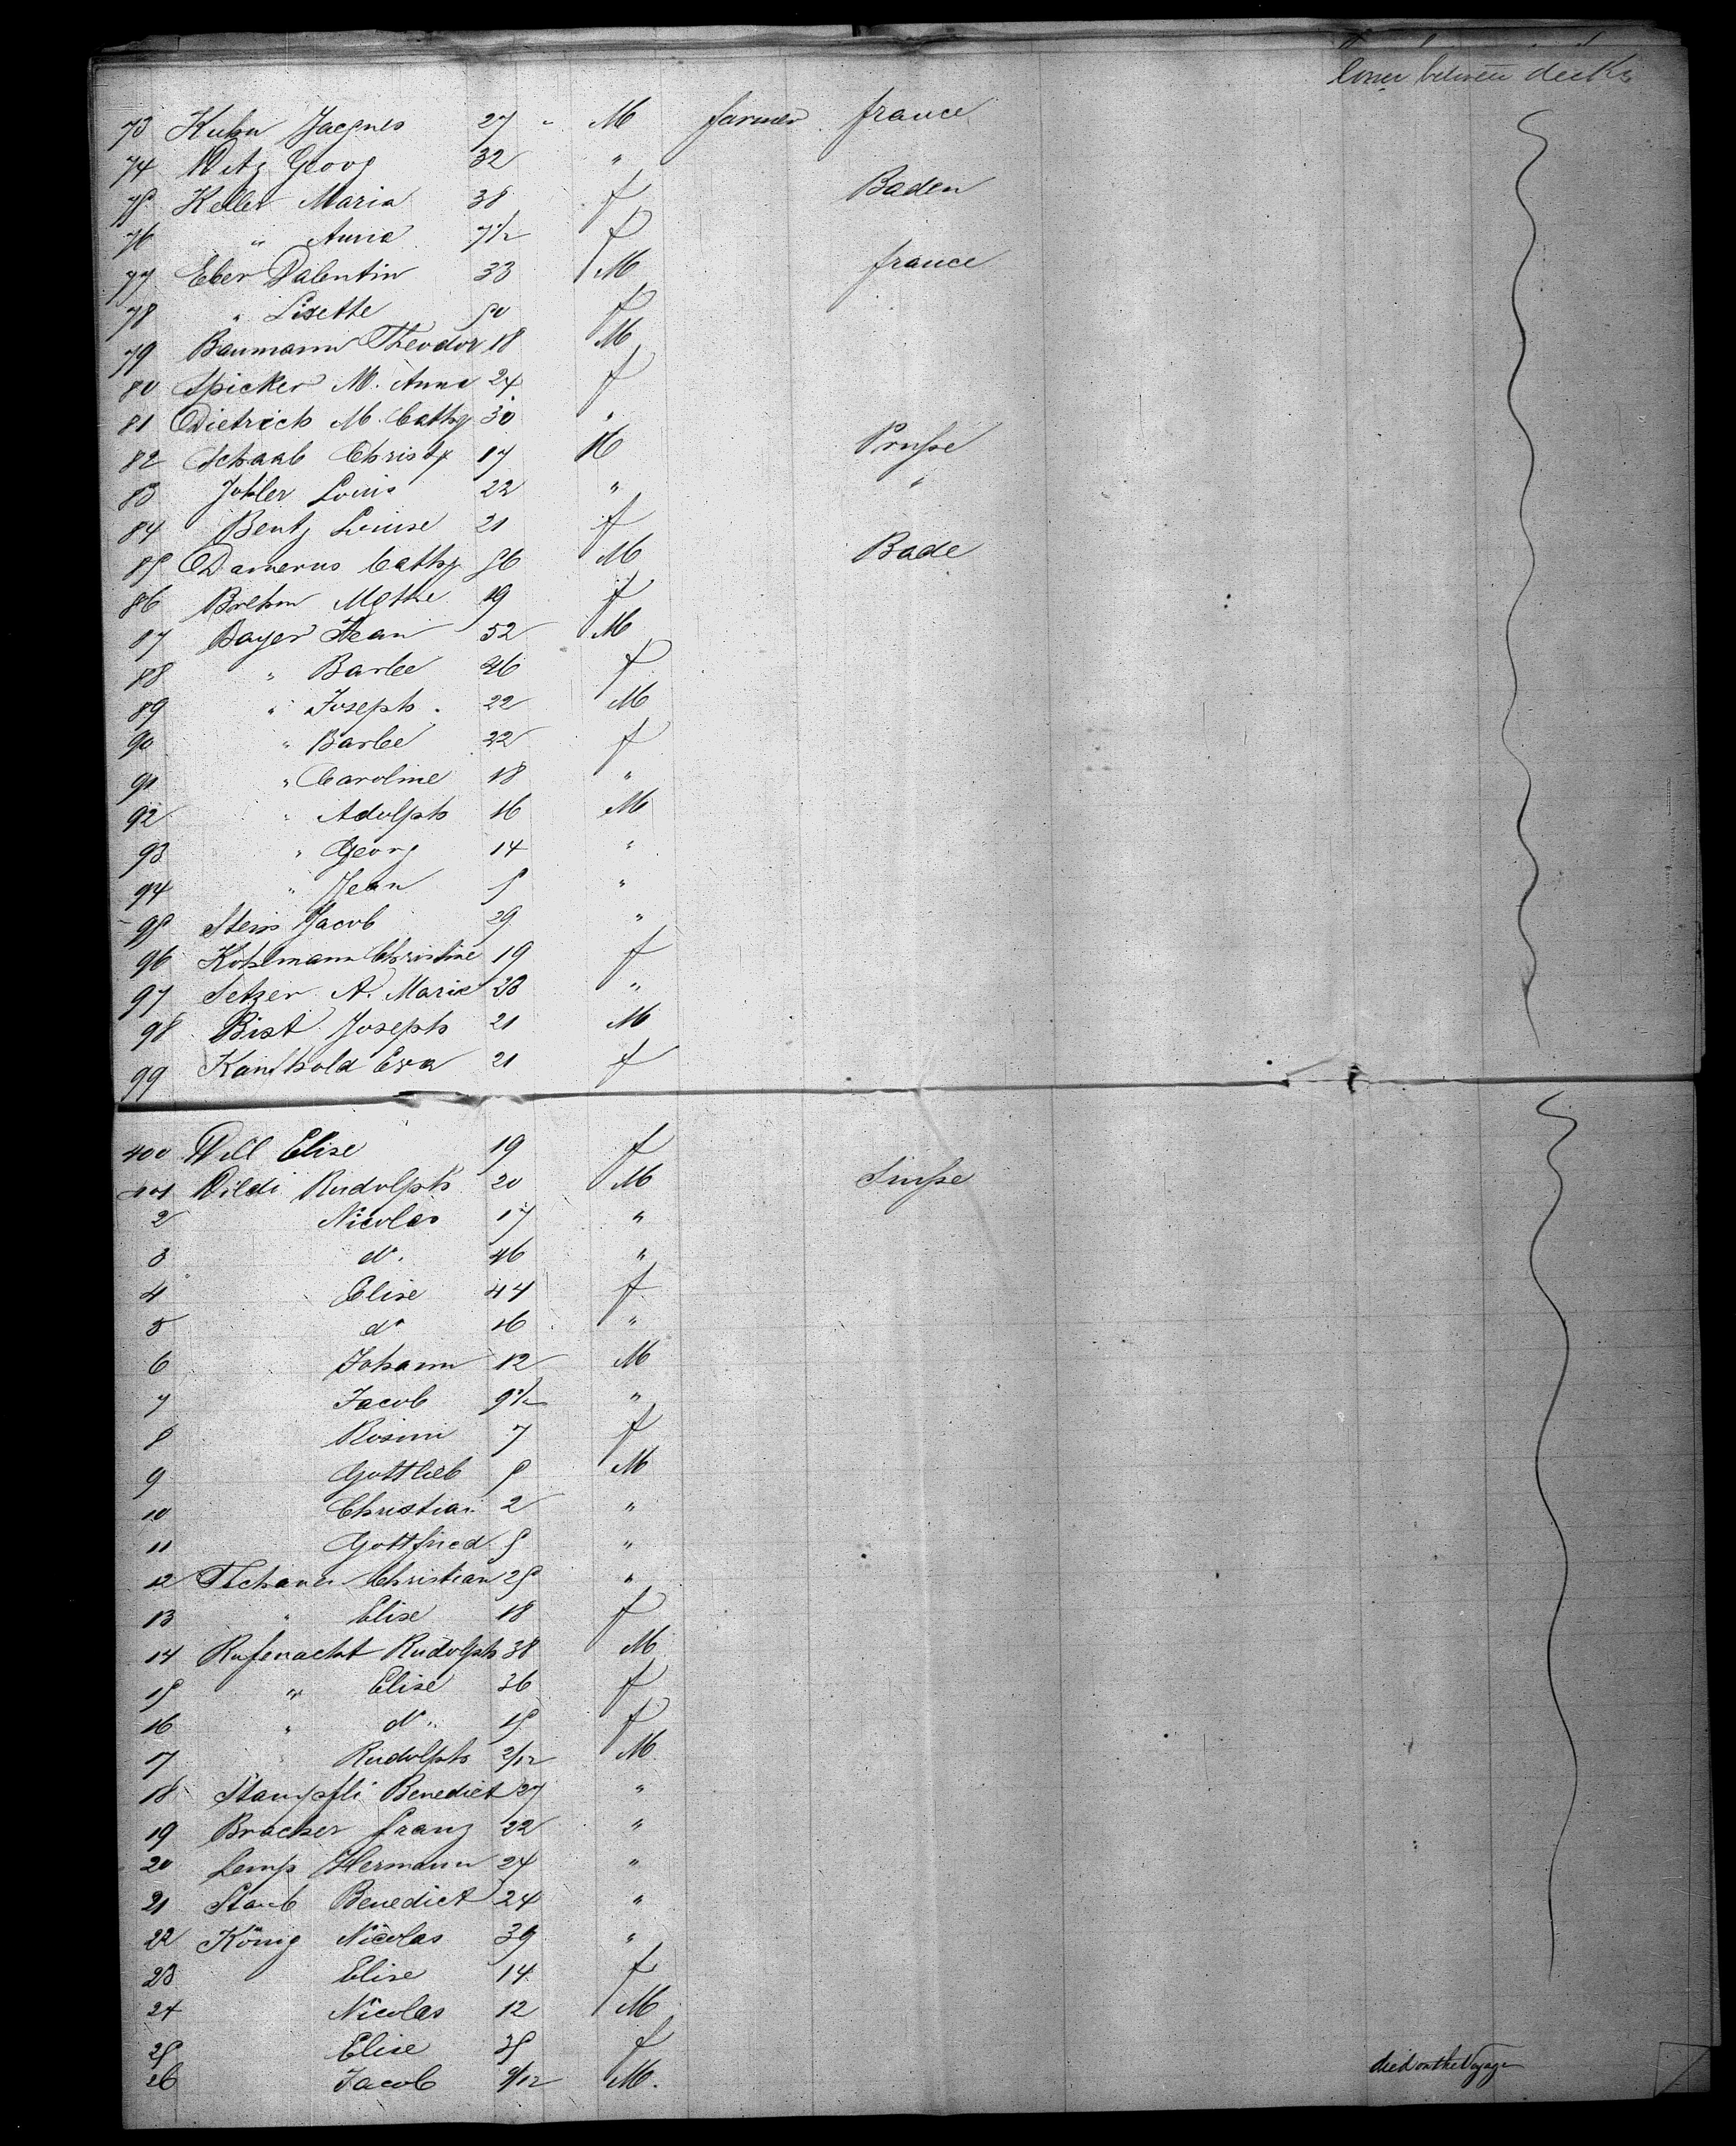 lower between decks
73 Kuhn Jacques 27 " M farmer france
74 Witz Georg 32 "
75 Keller Maria 38 f Baden
76 " Anna 7 1/2 f
77 Eber Valentin 33 M france
78 " Lisette 50 f
79 Baumann Theodor 18 M
80 Spicker M. Anna 24 f
81 Dietrich M. Cath. 30 "
82 Schaab Christ. 17 M Prusse
83 Johler Louis 22 " "
84 Bentz Louise 21 f
85 Damerus Cath. 56 M Bade
86 Brehm 19 f
87 Bayer Jean 52 M
88 " Barbe 46 f
89 " Joseph 22 M
90 " Barbe 22 f
91 " Caroline 18 "
92 " Adolph 16 M
93 " Georg 14 "
94 " Jean 5 "
95 Stein Jacob 29 "
96 Kohlmann Christine 19 f
97 Setzer A. Marie 23 "
98 Bist Joseph 21 M
99 Kanthold Eva 21 f
400 Will Elise 19 f
401 Wildi Rudolph 20 M Suisse
2 Nicolas 17 "
3 do. 46 "
4 Elise 44 f
5 do 16 "
6 Johann 12 M
7 Jacob 9 1/2 "
8 Rosini 7 f
9 Gottlieb 5 M
10 Christian 2 "
11 Gottfried 5 "
12 Tschanen Christian 25 "
13 " Elise 18 f
14 Rufenacht Rudolph 38 M
15 " Elise 36 f
16 " do " 15 f
17 Rudolph 2/12 M
18 Stampfli Benedict 27 "
19 Bracher franz 22 "
20 Lemp Hermann 24 "
21 Staub Benedict 24 "
22 König Nicolas 39 "
23 Elise 14 f
24 Nicolas 12 M
25 Elise 35 f
26 Jacob 9/12 M. died on the Voyage